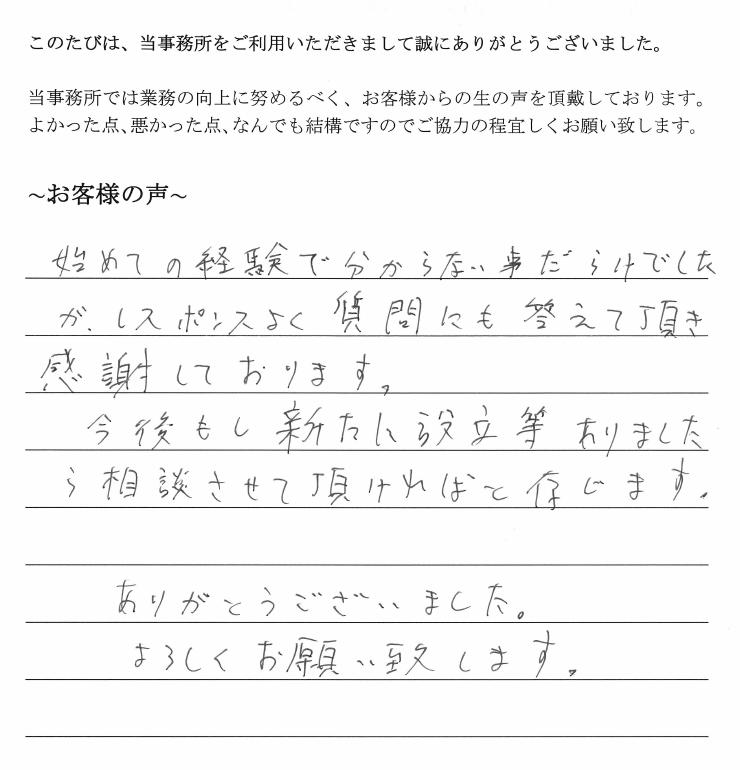 このたびは、当事務所をご利用いただきまして誠にありがとうございました。
当事務所では業務の向上に努めるべく、お客様からの生の声を頂戴しております。
よかった点、悪かった点、なんでも結構ですのでご協力の程宜しくお願い致します。
~お客様の声~
始めての経験で分からない事だらけでした
が、レスポンスよく質問にも答えて頂き
感謝しております。
今後もし新たに設立等ありました
ら相談させて頂ければと存じます。
ありがとうございました。
よろしくお願い致します。